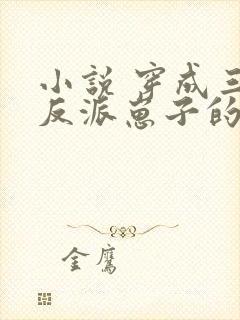 小说 穿成三
反派崽子的
金鹰